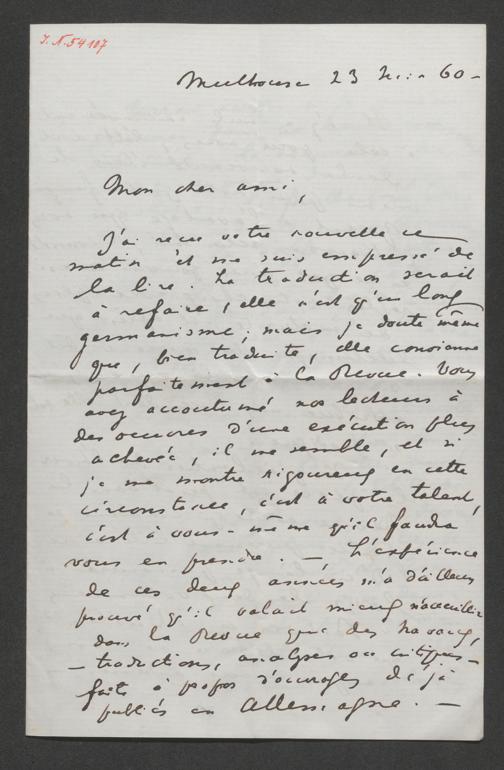 J.N. 54107
Mulhouse 23 Juin 60 -
Mon cher ami,
J'ai reçu votre nouvelle ce
matin et me suis empressé de
la lire. La traduction serait
à refaire, elle n'est qu'un long
germanisme; mais je doute même
que, bien traduite, elle convienne
parfaitement à la Revue. Vous
avez accoutumé nos lecteurs à
des oeuvres d'une exécution plus
achevée, il me semble, et si
je me montre rigoureux en cette
circonstance, c'est à votre talent,
c'est à vous-même qu'il faudra
vous en prendre. — L'expérience
de ces deux années m'a d'ailleurs
prouvé qu'il valait mieux n'accueillir
dans la Revue que des travaux,
- traductions, analyses ou critiques -
faits à propos d'ouvrages déjà
publiés en Allemagne. —